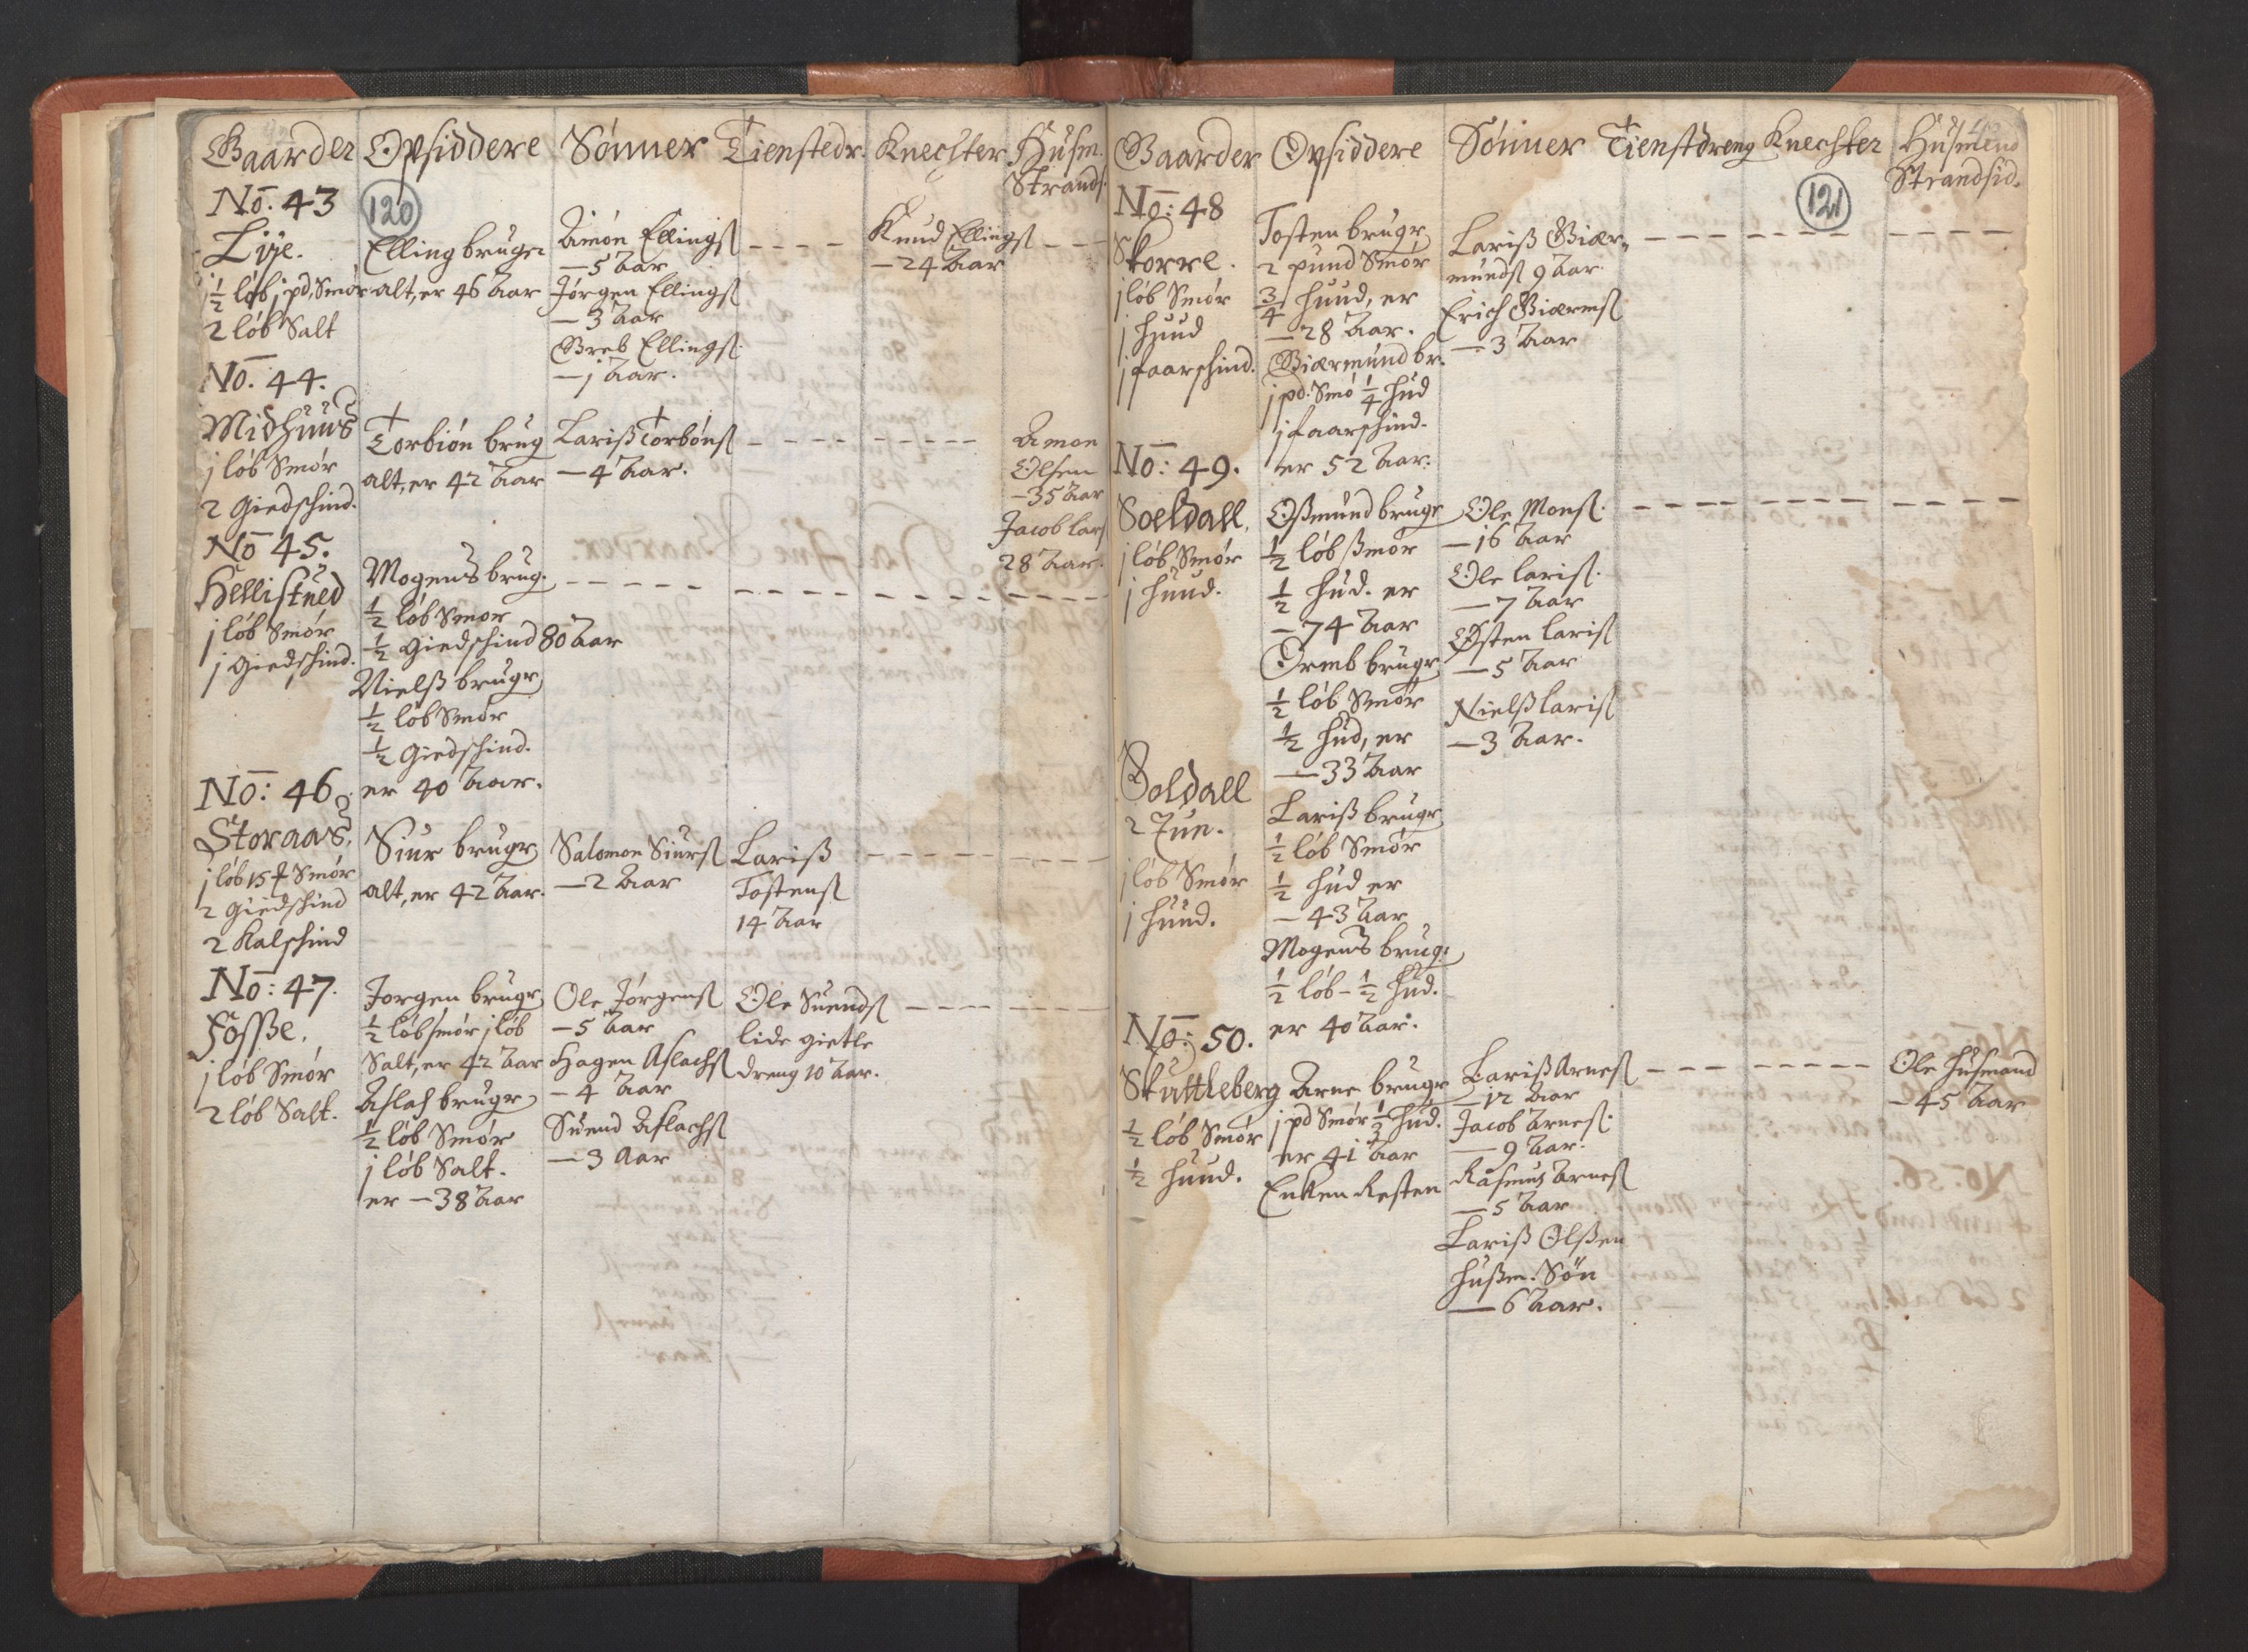 Gaarder Opsiddere Sønner Tienstedr. Knechter Husm.
Strands.
120
No. 43
Lije.
½ løb j pd. Smør
2 løb Salt
Elling bruger
alt, er 46 Aar
Amon Ellings.
— 5 Aar
Jørgen Ellings.
— 3 Aar
Greb Ellings.
— j Aar.
Knud Ellings.
— 24 Aar
No. 44.
Midhuus
j løb Smør
2 Giedschind.
Torbiøn brug
alt, er 42 Aar
Lariß Torbøns.
— 4 Aar.
Amon
Olsen
— 35 Aar
Jacob Lars.
28 Aar.
No 45.
Hellistued
j løb Smør
j Giedschind.
Mogens brug.
½ løb Smør
½ Giedschind 80 Aar
Nielß brugr
½ løb Smør
½ Giedschind.
er 40 Aar.
No: 46
Storaas.
j løb 15 ℔ Smør
2 Giedschind
2 Kalschind
Siur brugr
alt, er 42 Aar.
Salomon Siurs.
— 2 Aar
Lariß
Tostens.
14 Aar
No: 47.
Fosße.
j løb Smør
2 løb Salt.
Jørgen brugr
½ løb smør j løb
Salt, er 42 Aar
Aslach brugr
½ løb Smør
j løb Salt.
er — 38 Aar
Ole Jørgens.
— 5 Aar
Hagen Aslachs.
— 4 Aar
Suend Aslachs.
— 3 Aar
Ole Suends.
lide gietle
dreng 10 Aar.
Gaarder Opsiddere Sønner Tienstdreng Knechter Husmend
Strandsid.
121
No: 48
Skorre.
j løb Smør
j huud
j faarschind.
Tosten brugr
2 pund Smør
¾ huud, er
— 28 Aar.
Giærmund br.
j pd. Smø ¼ hud
j faarschind.
er 52 Aar.
Lariß Giær-
munds. 9 Aar.
Erich Giærms.
— 3 Aar
No: 49.
Soeldall.
j løb Smør
j huud.
Oßmund brugr
½ løb Smør
½ hud. er
— 74 Aar
Ormb brugr
½ løb Smør
½ hud, er
— 33 Aar
Ole Mons.
— 16 Aar
Ole Laris.
— 7 Aar
Østen Laris.
— 5 Aar
Nielß Laris.
— 3 Aar.
Soldall
2 Tun.
j løb Smør
j huud.
Lariß brugr
½ løb Smør
½ hud er
— 43 Aar
Mogens brug.
½ løb - ½ hud.
er 40 Aar.
No: 50.
Skuttleberg
½ løb Smør
½ huud.
Arne brugr
j pd Smør ⅓ hud.
er 41 Aar
Enken Resten
Lariß Arnes.
— 12 Aar
Jacob Arnes.
— 9 Aar.
Rasmus Arnes.
— 5 Aar
Lariß Olßen
hußm. Søn
— 6 Aar.
Ole husmand
— 45 Aar